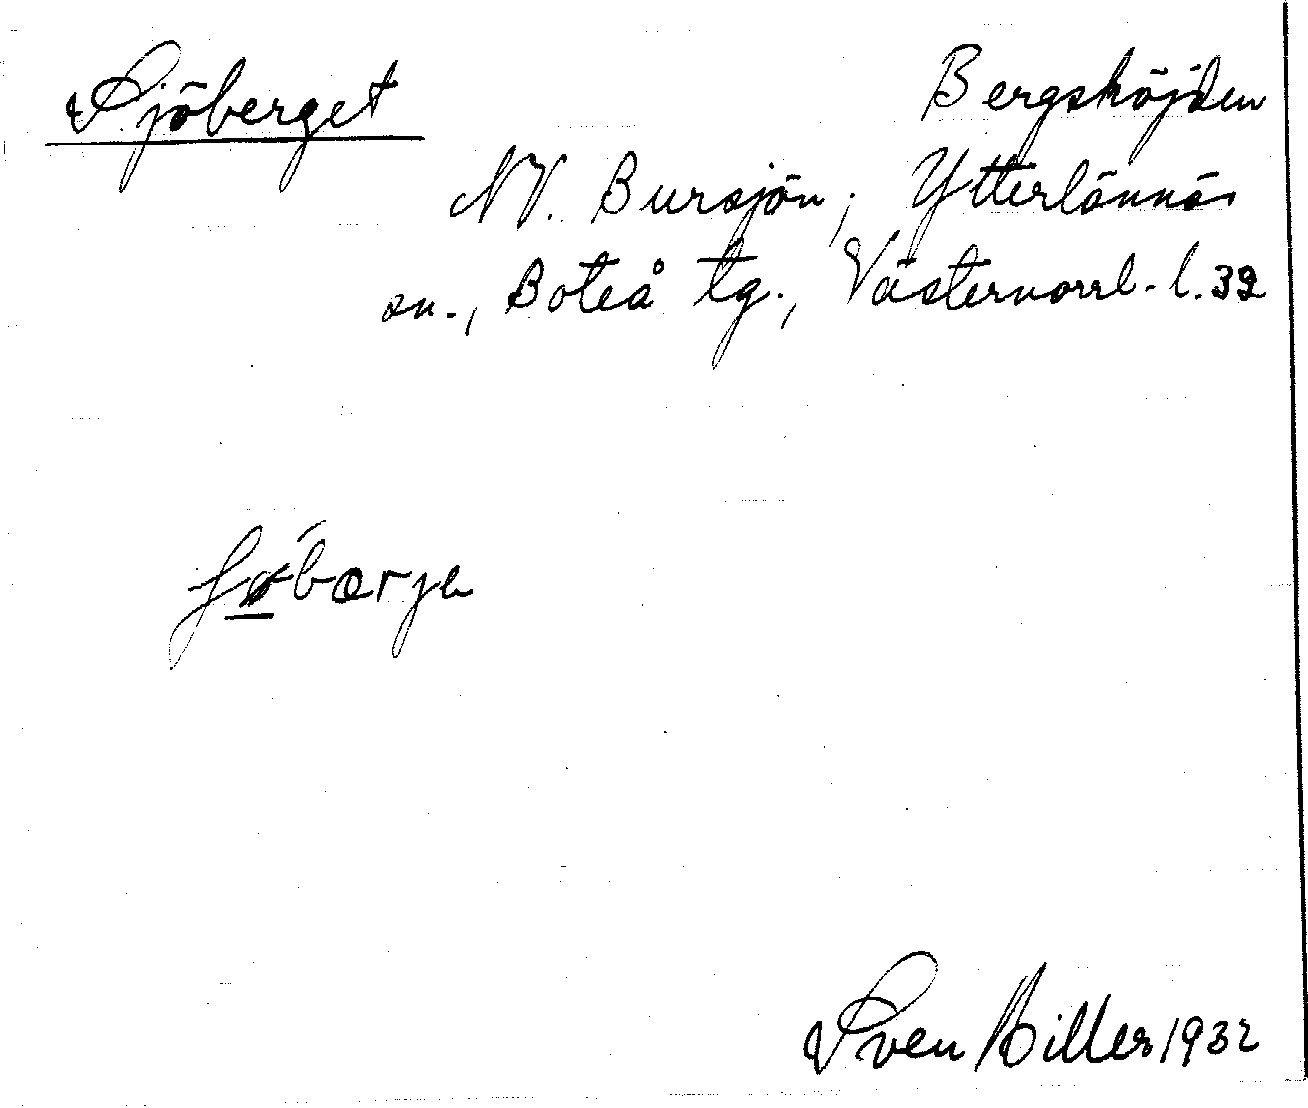 Sjöberget
Bergshöjden
NV. Bursjön, Ytterlännäs
sn., Boteå tg., Västernorrl. l. 32
Sven Hiller 1932